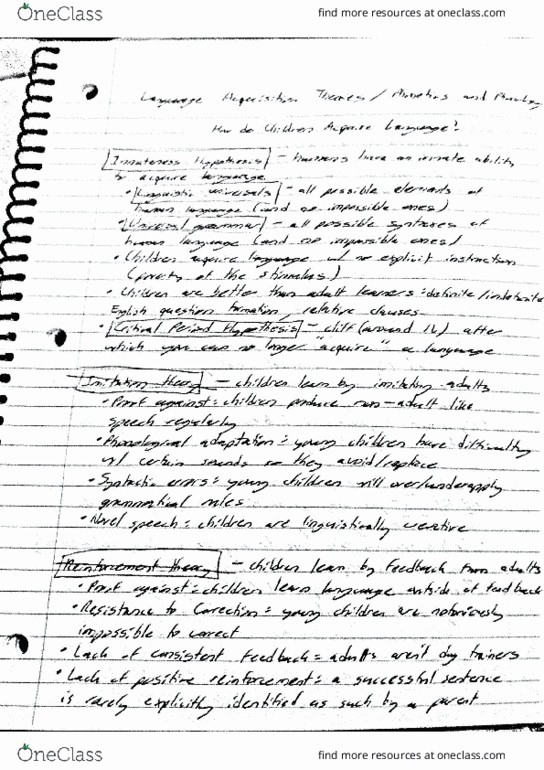 OneClass
find more resources at oneclass.com
Language Acquisition Theories / Phonetics and Phonology
How do Children Acquire Language?
Innateness Hypothesis - humans have an innate ability
to acquire language
• Linguistic universals - all possible elements of
human language (and no impossible ones)
• Universal grammar - all possible syntaxes of
human language (and no impossible ones)
• Children acquire language w/ no explicit instruction
(poverty of the stimulus)
• Children are better than adult learners: definite/indefinite
English question formation, relative clauses
• Critical Period Hypothesis - cliff (around 16) after
which you can no longer "acquire" a language
Imitation theory - children learn by imitating adults
• Proof against: children produce non-adult like
speech regularly
• Phonological adaptation: young children have difficulty
w/ certain sounds so they avoid/replace
• Syntactic errors: young children will over/underapply
grammatical rules
• Novel speech: children are linguistically creative
Reinforcement theory - children learn by feedback from adults
• Proof against: children learn language outside of feedback
• Resistance to Correction: young children are notoriously
impossible to correct
• Lack of consistent feedback: adults aren't dog trainers
• Lack of positive reinforcement: a successful sentence
is rarely explicitly identified as such by a parent
OneClass
find more resources at oneclass.com